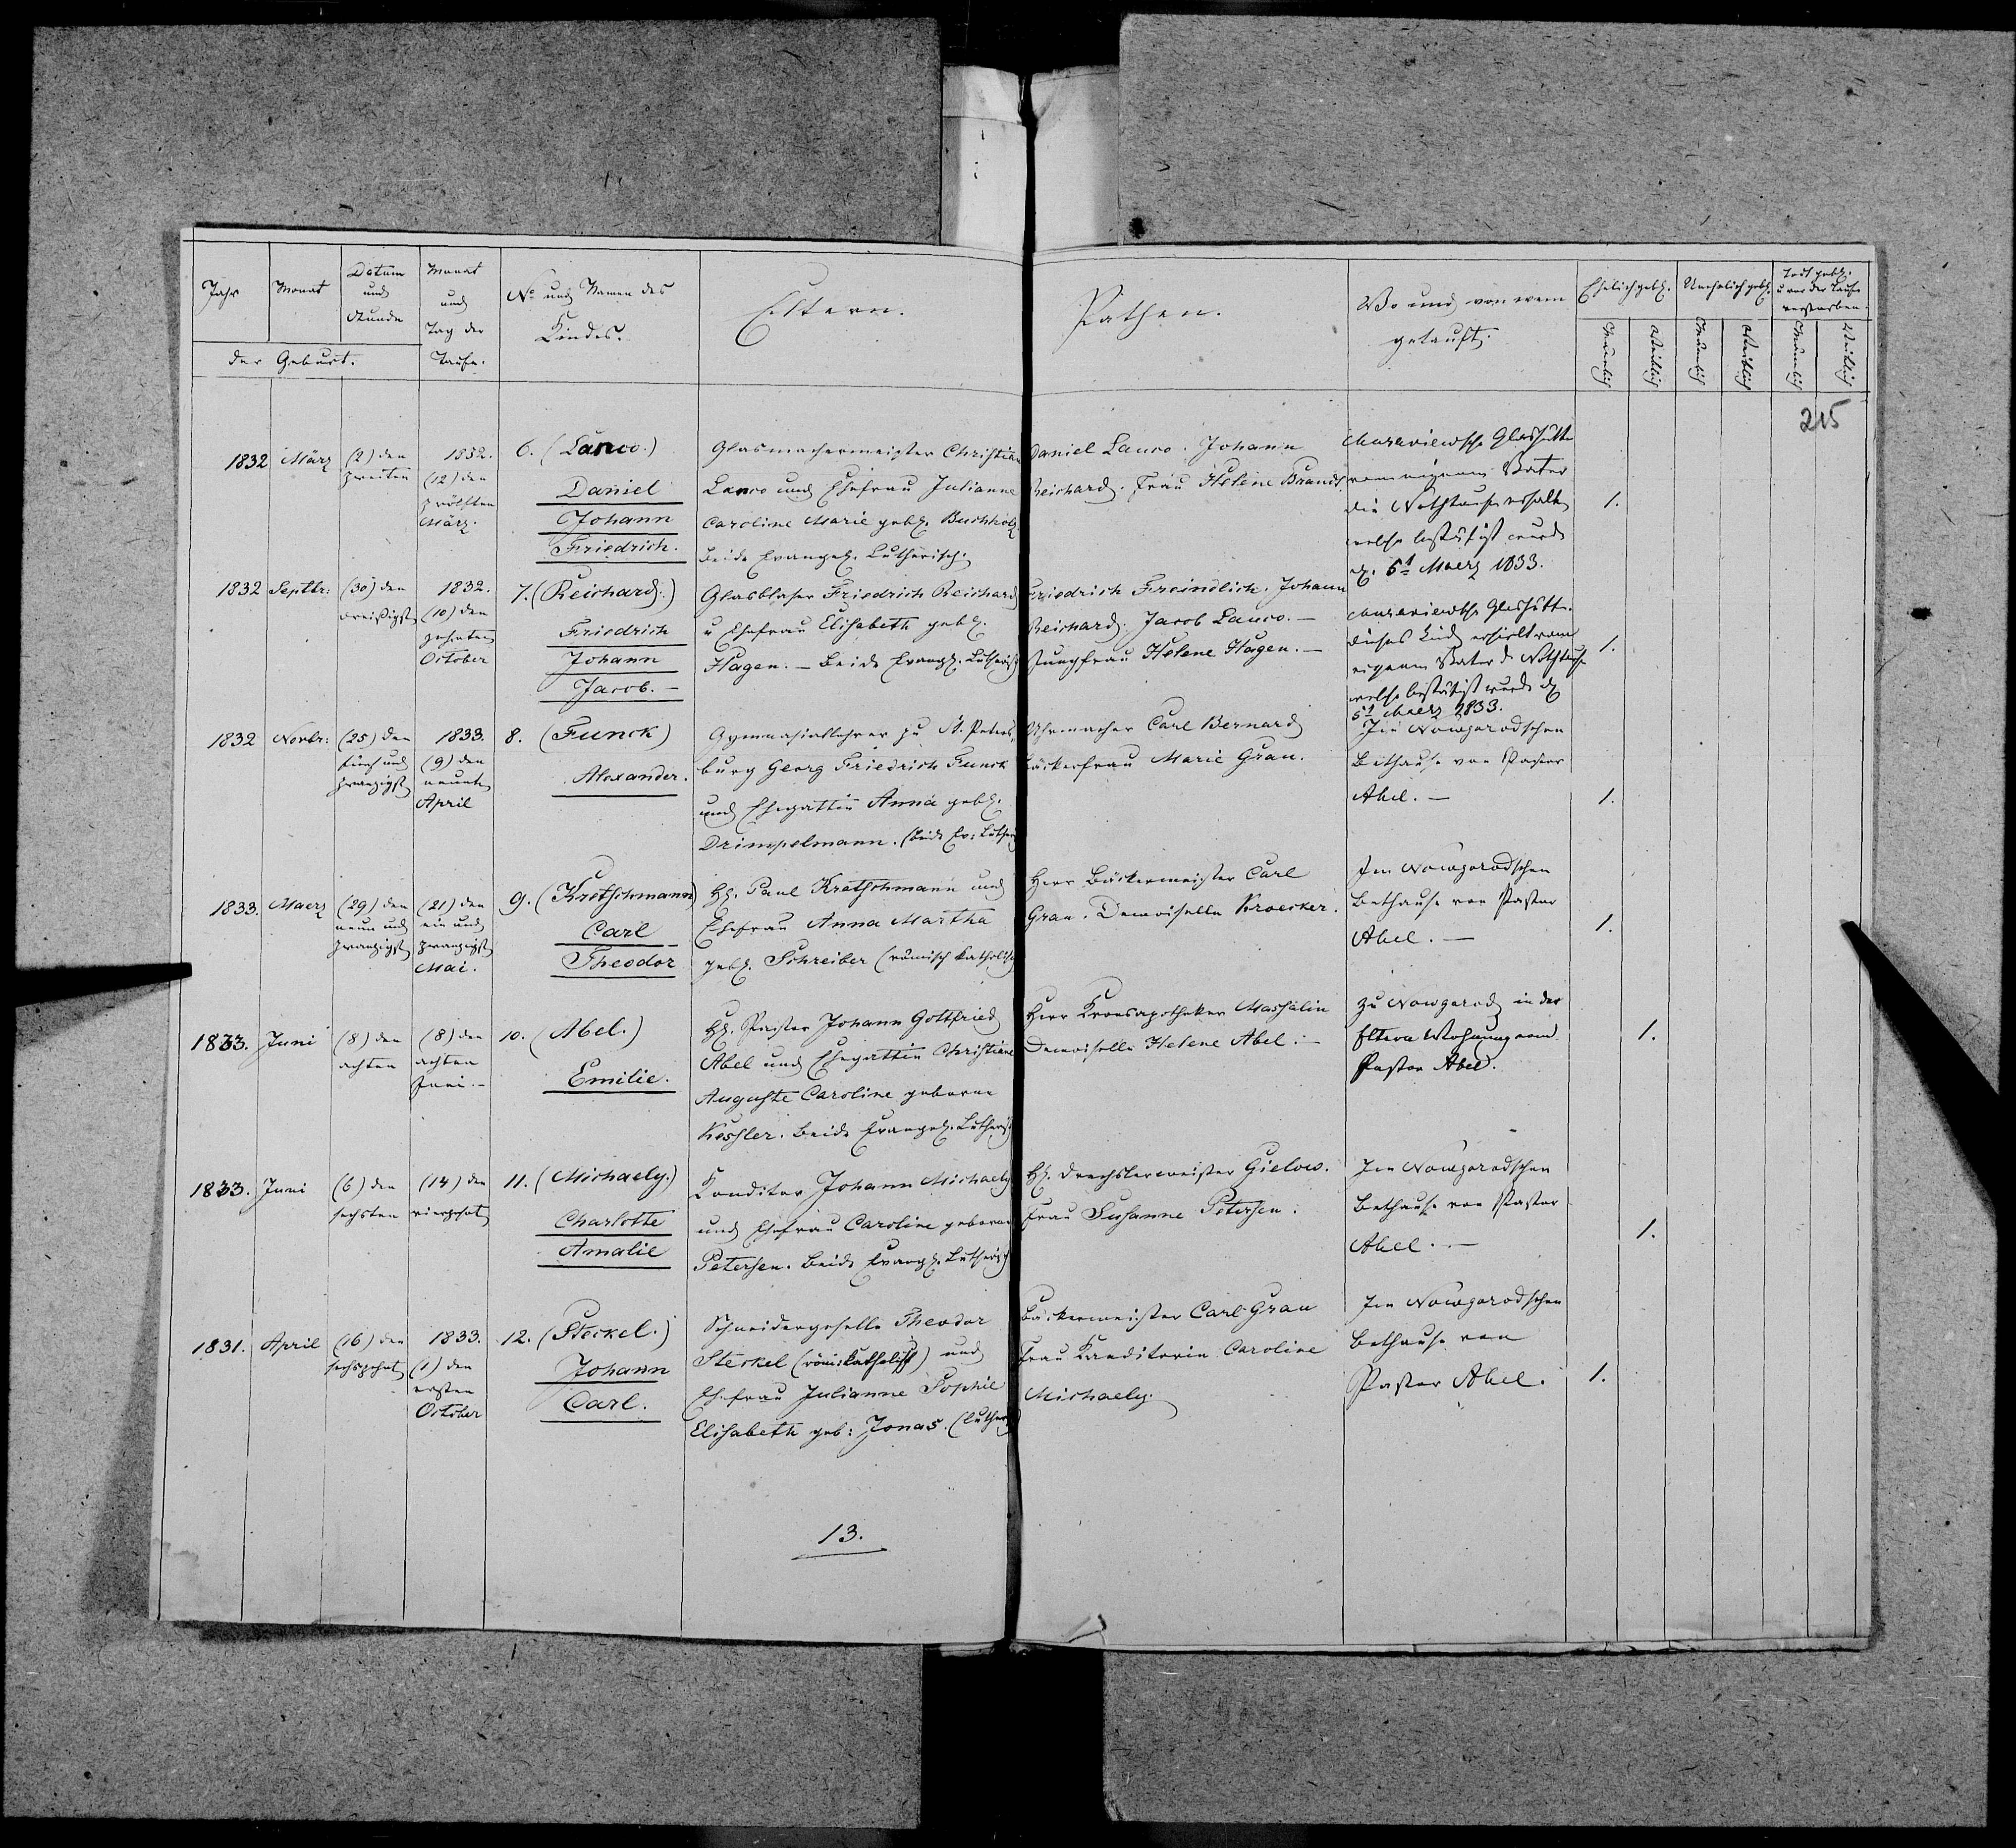 Jahr
Monat
Datum
und
Stunde
der Geburt.
Monat
und
Tag der
Taufe.
No und Namen des
Kindes.
Eltern.
Pathen.
Wo und von wem
getauft.
Ehelich geb.
Unehelich geb.
Todt geb.
u vor der Taufe
verstorben.
Männlich
Weiblich
Männlich
Weiblich
Männlich
Weiblich
215
1832 März (2) den
zweiten
1832.
(12) den
zwölften
März.
6. (Lanco.)
Daniel
Johann
Friedrich.
Glasmachermeister Christian
Lanco und Ehefrau Julianne
Caroline Marie geb. Buchholz
beide Evangel. Lutherisch.
Daniel Lanco. Johann
Reichard. Frau Helene Brandt.
Glashütte
vom eigenen Vater
die Nothtaufe erhalten
welche bestätigt wurde
d. 5t Maerz 1833.
1.
1832 Septbr: (30) den
dreißigst
1832.
(10) den
zehnten
October
7. (Reichard.)
Friedrich
Johann
Jacob. –
Glasblaser Friedrich Reichard
u Ehefrau Elisabeth geb.
Hagen. – beide Evangl. Lutherisch
Friedrich Freindlich. Johann
Reichard. Jacob Lanco. –
Jungfrau Helene Hagen. –
Glashütte.
dieses Kind erhielt vom
eigenen Vater d. Nothtaufe
welche bestätigt wurde d
5t Maerz 1833.
1.
1832 Novbr: (25) den
fünf und
zwanzigst
1833.
(9) den
neunten
April
8. (Funck)
Alexander.
Gymnasiallehrer zu St. Peters-
burg Georg Friedrich Funck
und Ehegattin Anna geb.
Drimpelmann. (beide Ev: Luther
Uhrmacher Carl Bernard
Bäckerfrau Marie Grau.
Im Nowgorodschen
Bethause von Pastor
Abel. –
1.
1833. Maerz (29) den
neun und
zwanzigst
(21) den
ein und
zwanzigst
Mai.
9. (Kretschmann)
Carl
Theodor
H. Paul Kretschmann und
Ehefrau Anna Martha
geb. Schreiber (römisch katholisch
Herr Bäckermeister Carl
Grau. Demoiselle Kroecker.
Im Nowgorodschen
Bethause von Pastor
Abel. –
1.
1833. Juni (8) den
achten
(8) den
achten
Juni. –
10. (Abel.)
Emilie.
H. Pastor Johann Gottfried
Abel und Ehegattin Christiane
Auguste Caroline geborne
Kessler. beide Evangel. Lutherisch
Herr Kronsapotheker Maschalin
Demoiselle Helene Abel. –
zu Nowgorod in der
Eltern Wohnung vom
Pastor Abel.
1.
1833. Juni (6) den
sechsten
(14) den
vierzehnt
11. (Michaely.)
Charlotte
Amalie
Konditor Johann Michaely
und Ehefrau Caroline geborne
Petersen. beide Evangl. Lutherisch
H. Drechslermeister Gielow.
Frau Susanne Petersen.
Im Nowgorodschen
Bethause von Pastor
Abel. –
1.
1831. April (16) den
sechszehnt
1833.
(1) den
ersten
October
12. (Steckel.)
Johann
Carl.
Schneidergeselle Theodor
Steckel (röm: katholisch) und
Ehefrau Julianne Sophie
Elisabeth geb: Jonas. (Luther
Bäckermeister Carl Grau
Frau Konditorin Caroline
Michaely
Im Nowgorodschen
Bethause von
Pastor Abel.
1.
13.